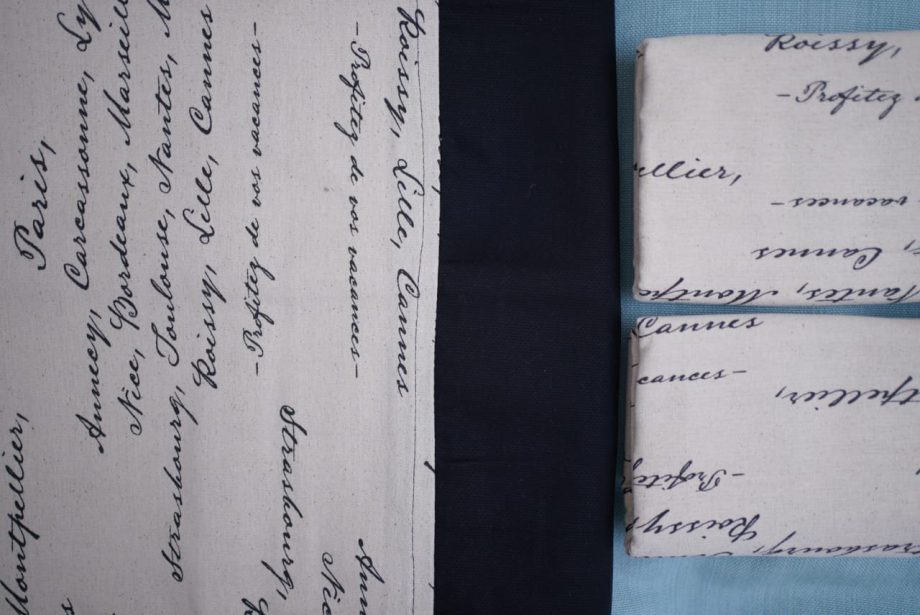 Paris,
Annecy, Carcassonne, Ly
Nice, Bordeaux, Marseill
Strasbourg, Toulouse, Nantes, M
Roissy, Lille, Cannes
-Profitez de vos vacances-
Montpellier,
-Profitez de vos vacances-
Roissy, Lille, Cannes
Strasbourg,
Nic
Ann
Roissy,
-Profitez
llier,
vacances-
, Cannes
Nantes, Montpe
Cannes
cances-
tpellier,
-Profitez
Roissy,
rasbourg,